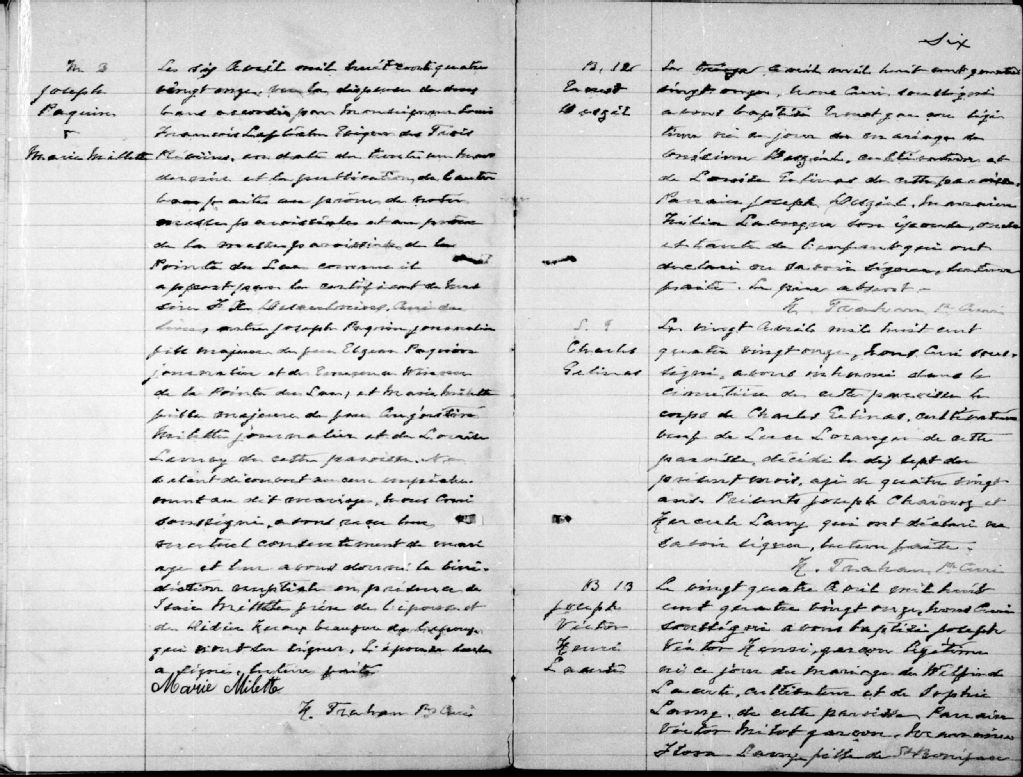 M 3
Joseph
Paquin
&
Marie Milette
Le six Avril mil huit cent quatre
vingt onze, vu la dispense de deux
bans accordée par Monseigneur Louis
François Laflèche Evêque des Trois
Rivières, en date du trente un Mars
dernier et la publication de l'autre
ban faite au prône de notre
messe paroissiale et au prône
de la messe paroissiale de la
Pointe du Lac comme il
appert par le certificat de Mes
sire Curé du
lieu, entre Joseph Paquin journalier
fils majeur de feu Paquin
journalier et de
de la Pointe du Lac, et Marie Milette
fille majeure de feu Augustin
Milette journalier et de Louise
Launay de cette paroisse. Ne
s'étant découvert aucun empêche
ment au dit mariage, Nous Curé
soussigné, avons reçu leur
mutuel consentement de mari
age et leur avons donné la béné
diction nuptiale en présence de
Isaïe Milette frère de l'épouse et
de Didier Heroux beaufrère
qui n'ont su signer. L'épouse seule
a signé, lecture faite
Marie Milette
H. Trahan Ptre Curé
Six
B. 12
Ernest

Le Avril mil huit cent quatre
vingt onze, Nous Curé, soussigné
avons baptisé Ernest garçon légi
time né ce jour du mariage de
Onésime cultivateur et
de Louise Gelinas de cette paroisse.
Parrain Joseph Marraine
son épouse, oncle
et tante de l'enfant qui ont
déclaré ne savoir signer, lecture
faite. Le père absent.
H. Trahan Ptre Curé
S. 9
Charles
Gelinas
Le vingt Avril mil huit cent
quatre vingt onze, Nous Curé sous-
signé, avons inhumé dans le
cimetière de cette paroisse le
corps de Charles Gelinas, cultivateur
veuf de Luce Loranger de cette
paroisse, décédé le dix sept du
présent mois, agé de quatre vingt
ans. Présents Joseph et
Hercule Lamy qui ont déclaré ne
savoir signer, lecture faite.
H. Trahan Ptre Curé
B 13
Joseph
Victor
Henri
Lacerte
Le vingt quatre Avril mil huit
cent quatre vingt onze, Nous Curé
soussigné avons baptisé Joseph
Victor Henri, garçon légitime
né ce jour du mariage de Wilfrid
Lacerte, cultivateur et de Sophie
Lamy, de cette paroisse. Parrain
Victor Milot garçon, Marraine
Flora Lamy fille de St Boniface